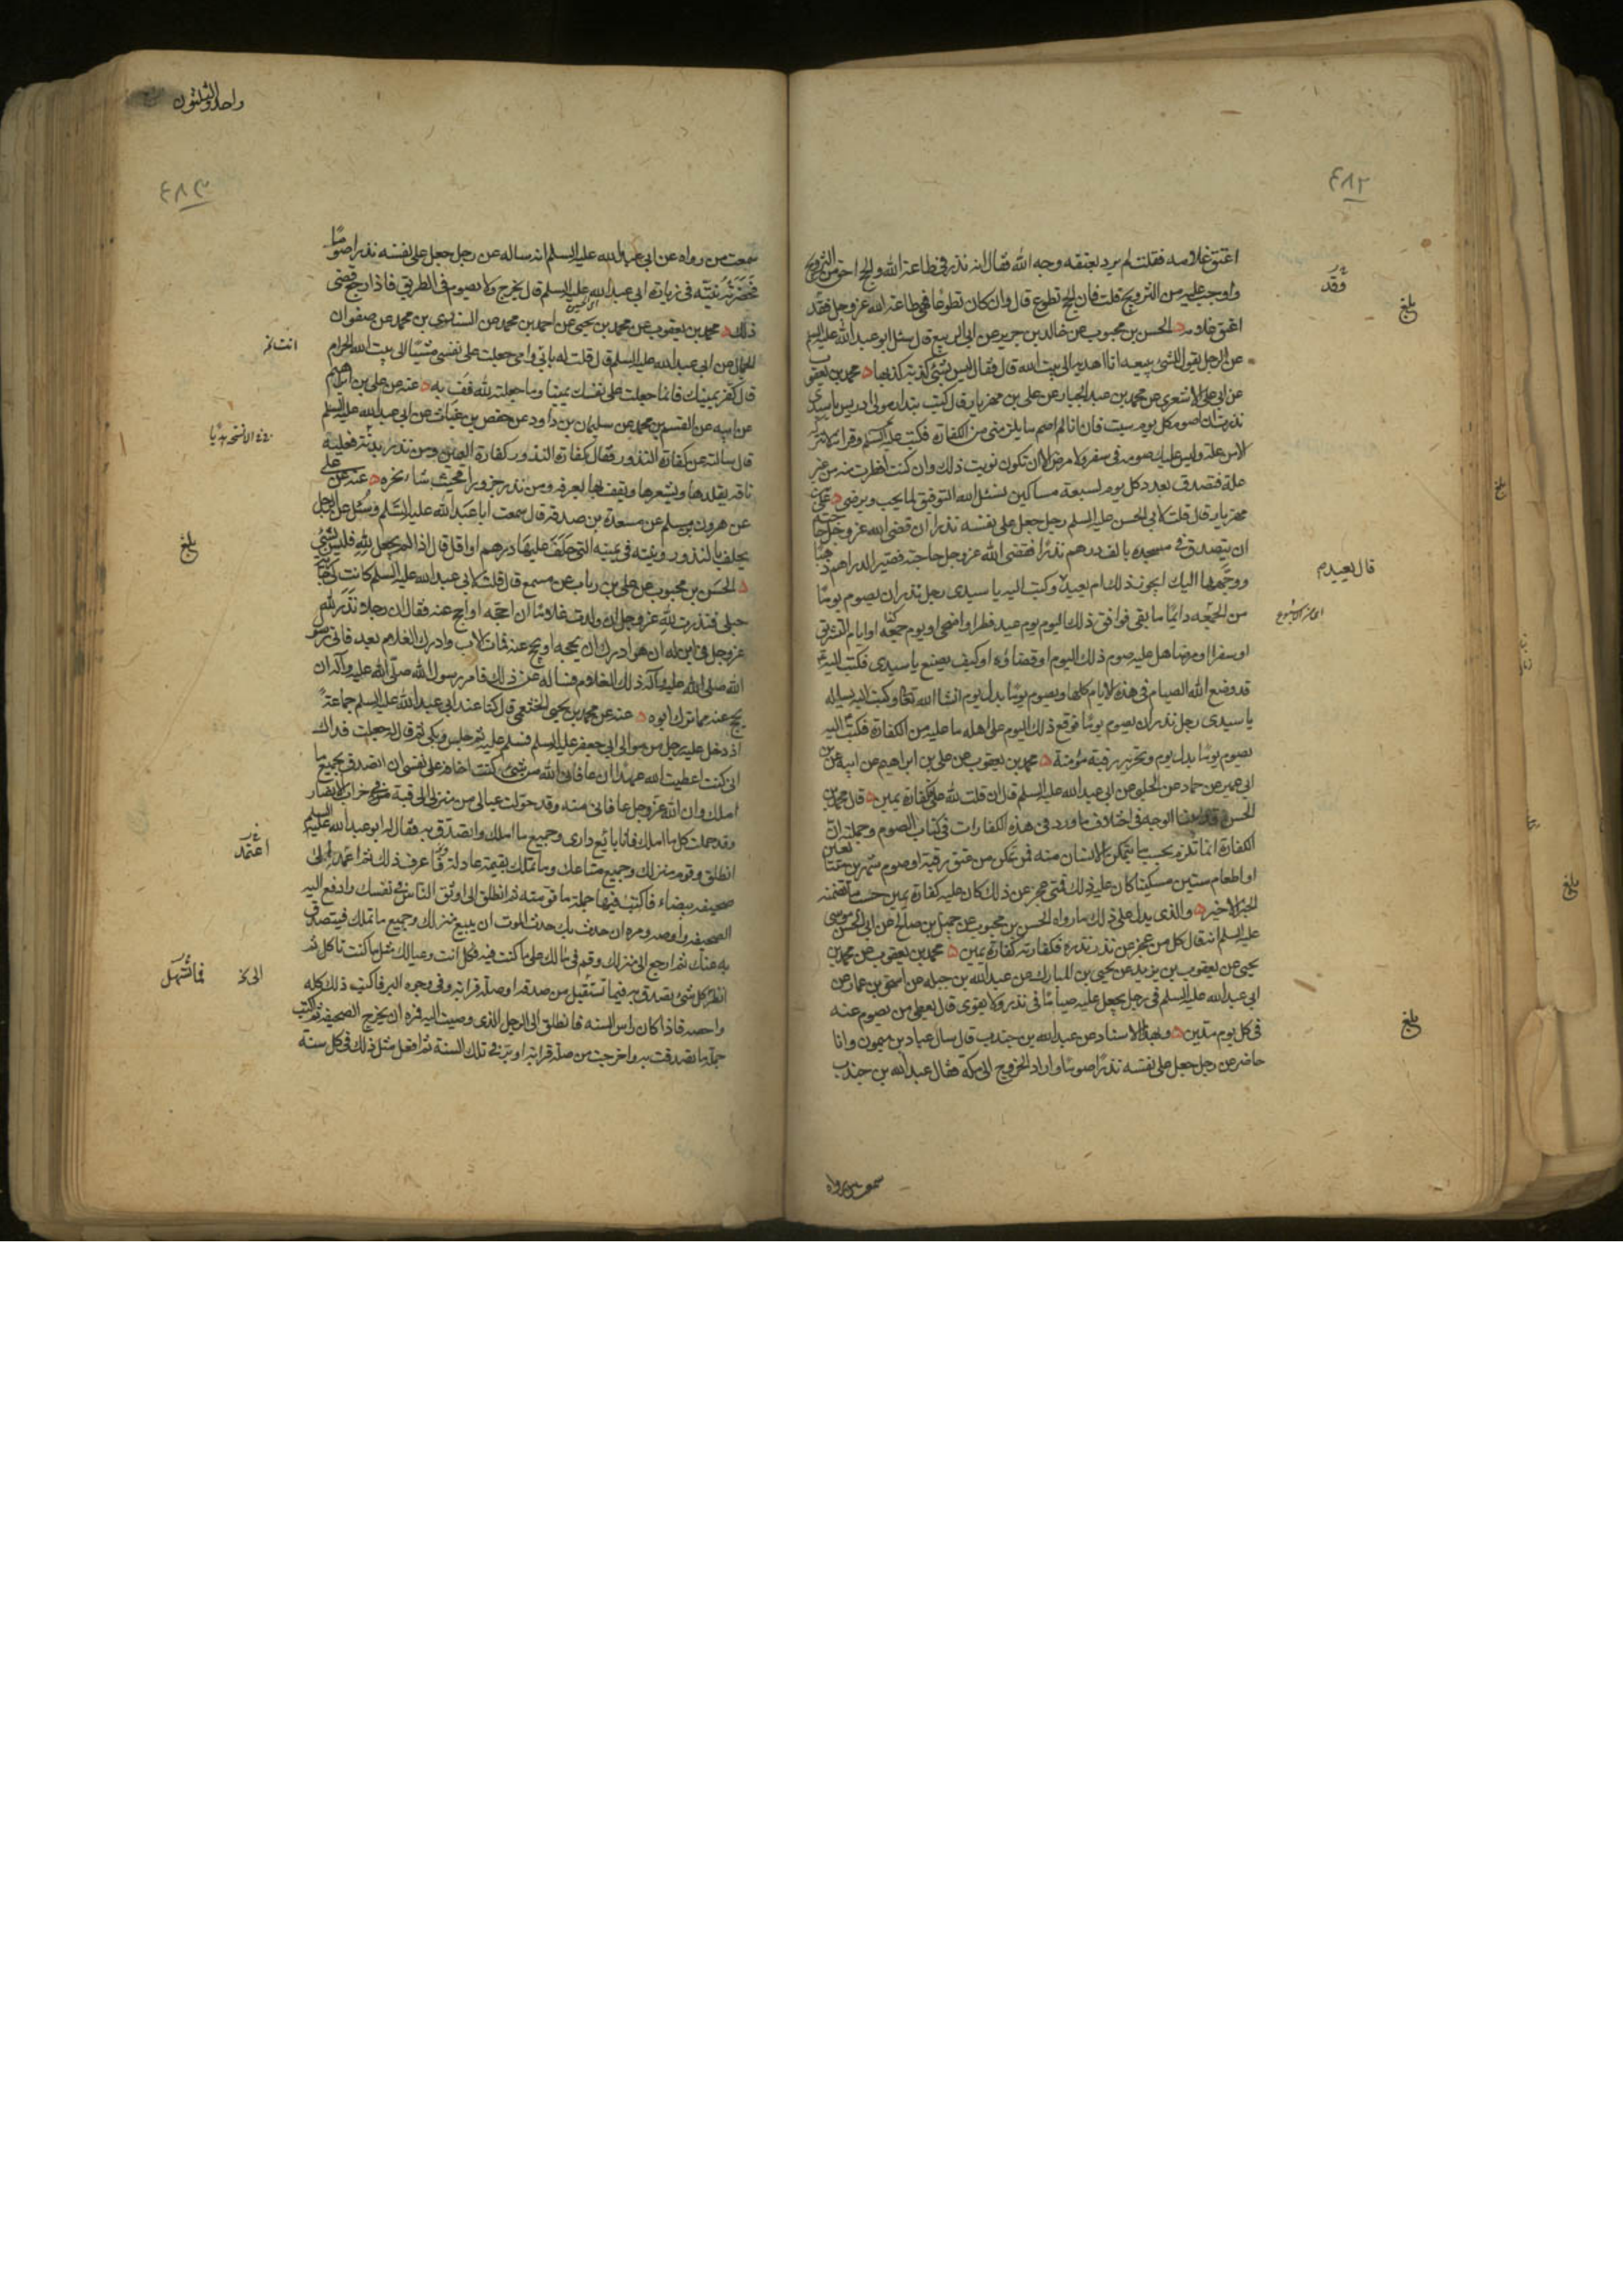 ٤٨٢
اعتق غلامه فقلت لم يرد بعتقه وجه الله فقال انه نذر في طاعة الله والحج احق من التزويج
واوجب عليه من التزويج قلت فان الحج تطوع قال وان كان تطوعا فهي طاعة الله عز وجل فقد
اعتق غلامه الحسن بن محبوب عن خالد بن جرير عن ابي الربيع قال سئل ابو عبد الله عليه السلم
عن الرجل يقول للشيء يبيعه انا اهديه الى بيت الله قال فقال ليس بشيء كذبة كذبها محمد بن يعقوب
عن ابي علي الاشعري عن محمد بن عبد الجبار عن علي بن مهزيار قال كتب بندار مولى ادريس يا سيدي
نذرت ان اصوم كل يوم سبت فان انا لم اصم ما يلزمني من الكفارة فكتب عليه السلم وقراته لا تتركه
الا من علة وليس عليك صومه في سفر ولا مرض الا ان تكون نويت ذلك وان كنت افطرت منه من غير
علة فتصدق بعدد كل يوم لسبعة مساكين نسئل الله التوفيق لما يحب ويرضى عنه عن علي بن
مهزيار قال قلت لابي الحسن عليه السلم رجل جعل على نفسه نذرا ان قضى الله عز وجل حاجته
ان يتصدق في مسجده بالف درهم نذرا فقضى الله عز وجل حاجته فصير الدراهم ذهبا
ووجهها اليك ايجوز ذلك ام يعيد وكتب اليه يا سيدي رجل نذر ان يصوم يوما
من الجمعه دائما ما بقي فوافق ذلك اليوم يوم عيد فطر او اضحى او يوم جمعه او ايام التشريق
او سفرا او مرضا هل عليه صوم ذلك اليوم او قضاؤه او كيف يصنع يا سيدي فكتب اليه
قد وضع الله الصيام في هذه الايام كلها ويصوم يوما بدل يوم انشا الله تعالى وكتب اليه يساله
يا سيدي رجل نذر ان يصوم يوما فوقع ذلك اليوم على اهله ما عليه من الكفارة فكتب اليه
يصوم يوما بدل يوم وتحرير رقبة مؤمنة محمد بن يعقوب عن علي بن ابراهيم عن ابيه عن ابن
ابي عمير عن حماد عن الحلبي عن ابي عبد الله عليه السلم قال ان قلت لله علي فكفارة يمين قال محمد بن
الحسن قد بينا الوجه في اختلاف ما ورد في هذه الكفارات في كتاب الصوم وجملته ان
الكفارة انما تلزم بحسب ما يتمكن الانسان منه فمن تمكن من عتق رقبة او صوم شهرين متتابعين
او اطعام ستين مسكينا كان عليه ذلك فمتى عجز عن ذلك كان عليه كفارة يمين حسب ما تضمنه
الخبر الاخير والذي يدل على ذلك ما رواه الحسن بن محبوب عن جميل بن صالح عن ابي الحسن موسى
عليه السلم انه قال كل من عجز عن نذر نذره فكفارته كفارة يمين محمد بن يعقوب عن محمد بن
يحيى عن يعقوب بن يزيد عن يحيى بن المبارك عن عبد الله بن جبله عن اسحق بن عمار عن
ابي عبد الله عليه السلم في رجل يجعل عليه صياما في نذر ولا يقوى قال يعطي من يصوم عنه
في كل يوم مدين وبهذا الاسناد عن عبد الله بن جندب قال سال عباد بن ميمون وانا
حاضر عن رجل جعل على نفسه نذرا صوما واراد الخروج الى مكة فقال عبد الله بن جندب
سمعت من رواه
فقد
بلغ
قال يعيدم
بلغ
بلغ
بلغ
واحد والثلثون
٤٨٣
سمعت من رواه عن ابي عبد الله عليه السلم انه ساله عن رجل جعل على نفسه نذرا صوما
فحضرته نيته في زيارة ابي عبد الله عليه السلم قال يخرج ولا يصوم في الطريق فاذا رجع قضى
ذلك محمد بن يعقوب عن محمد بن يحيى عن احمد بن محمد عن السندي بن محمد عن صفوان
الجمال عن ابي عبد الله عليه السلم قال قلت له بابي وامي جعلت على نفسي مشيا الى بيت الله الحرام
قال كفر يمينك فانما جعلت على نفسك يمينا وما جعلته لله فف به عنه عن علي بن ابراهيم
عن ابيه عن القسم بن محمد عن سليمان بن داود عن حفص بن غياث عن ابي عبد الله عليه السلم
قال سالته عن كفارة النذور فقال كفارة النذور كفارة اليمين ومن نذر بدنة فعليه
ناقة يقلدها ويشعرها ويقف بها بعرفه ومن نذر جزورا فحيث شا نحره عنه عن علي
عن هرون بن مسلم عن مسعدة بن صدقة قال سمعت ابا عبد الله عليه السلم وسئل عن الرجل
يحلف بالنذور ونيته في يمينه التي حلف عليها درهم او اقل قال اذا لم يجعل لله فليس بشيء
الحسن بن محبوب عن علي بن رياب عن مسمع قال قلت لابي عبد الله عليه السلم كانت لي جارية
حبلى فنذرت لله عز وجل ان ولدت غلاما ان احجه او احج عنه فقال ان رجلا نذر لله
عز وجل في ابن له ان هو ادرك ان يحجه او يحج عنه فمات الاب وادرك الغلام بعد فاتى رسول
الله صلى الله عليه وآله ذلك الغلام فساله عن ذلك فامر رسول الله صلى الله عليه وآله ان
يحج عنه مما ترك ابوه عنه عن محمد بن يحيى الخثعمي قال كنا عند ابي عبد الله عليه السلم جماعة
اذ دخل عليه رجل من موالي ابي جعفر عليه السلم فسلم عليه ثم جلس وبكى ثم قال له جعلت فداك
اني كنت اعطيت الله عهدا ان عافاني الله من شيء كنت اخافه على نفسي ان اتصدق بجميع ما
املك وان الله عز وجل عافاني منه وقد حولت عيالي من منزلي الى قبة في خراب الانصار
وقد حملت كل ما املك فانا بائع داري وجميع ما املك واتصدق به فقال له ابو عبد الله عليه السلم
انطلق وقوم منزلك وجميع متاعك وما تملك بقيمة عادلة فاعرف ذلك ثم اعمد الى
صحيفه بيضاء فاكتب فيها جملة ما قومته ثم انطلق الى اوثق الناس في نفسك وادفع اليه
الصحيفه واوصه ومره ان حدث بك حدث الموت ان يبيع منزلك وجميع ما تملك فيتصدق
به عنك ثم ارجع الى منزلك وقم في مالك على ما كنت فيه فكل انت وعيالك مثل ما كنت تاكل ثم
انظر كل شيء تصدق به فيما تستقبل من صدقه او صلة قرابة وفي وجوه البر فاكتب ذلك كله
واحصه فاذا كان راس السنه فانطلق الى الرجل الذي وصيت اليه فمره ان يخرج الصحيفه ثم اكتب
جملة ما تصدقت به واخرجت من صلة قرابة او بر في تلك السنة ثم افعل مثل ذلك في كل سنة
بلغ
اعتمد